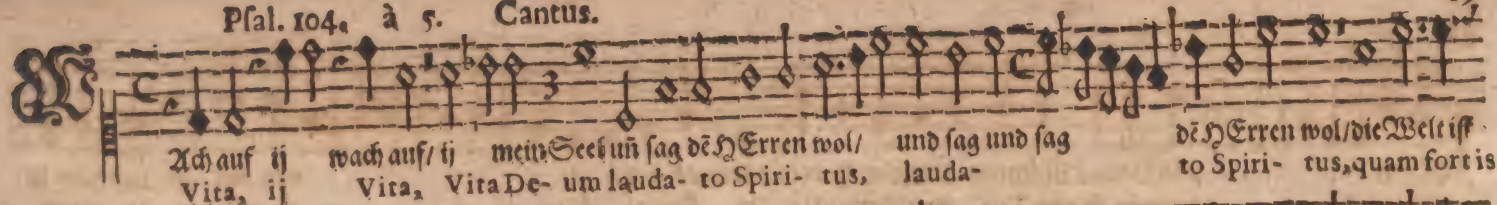 Pſal. 104. à 5. Cantus.
WAch auf ij wach auf/ ij mein Seel uñ ſag dē HErren wol/ und ſag und ſag dē HErren wol/die Welt iſt
Vita, ij Vita, Vita De- um lauda- to Spiri- tus, lauda- to Spiri- tus, quam fort is